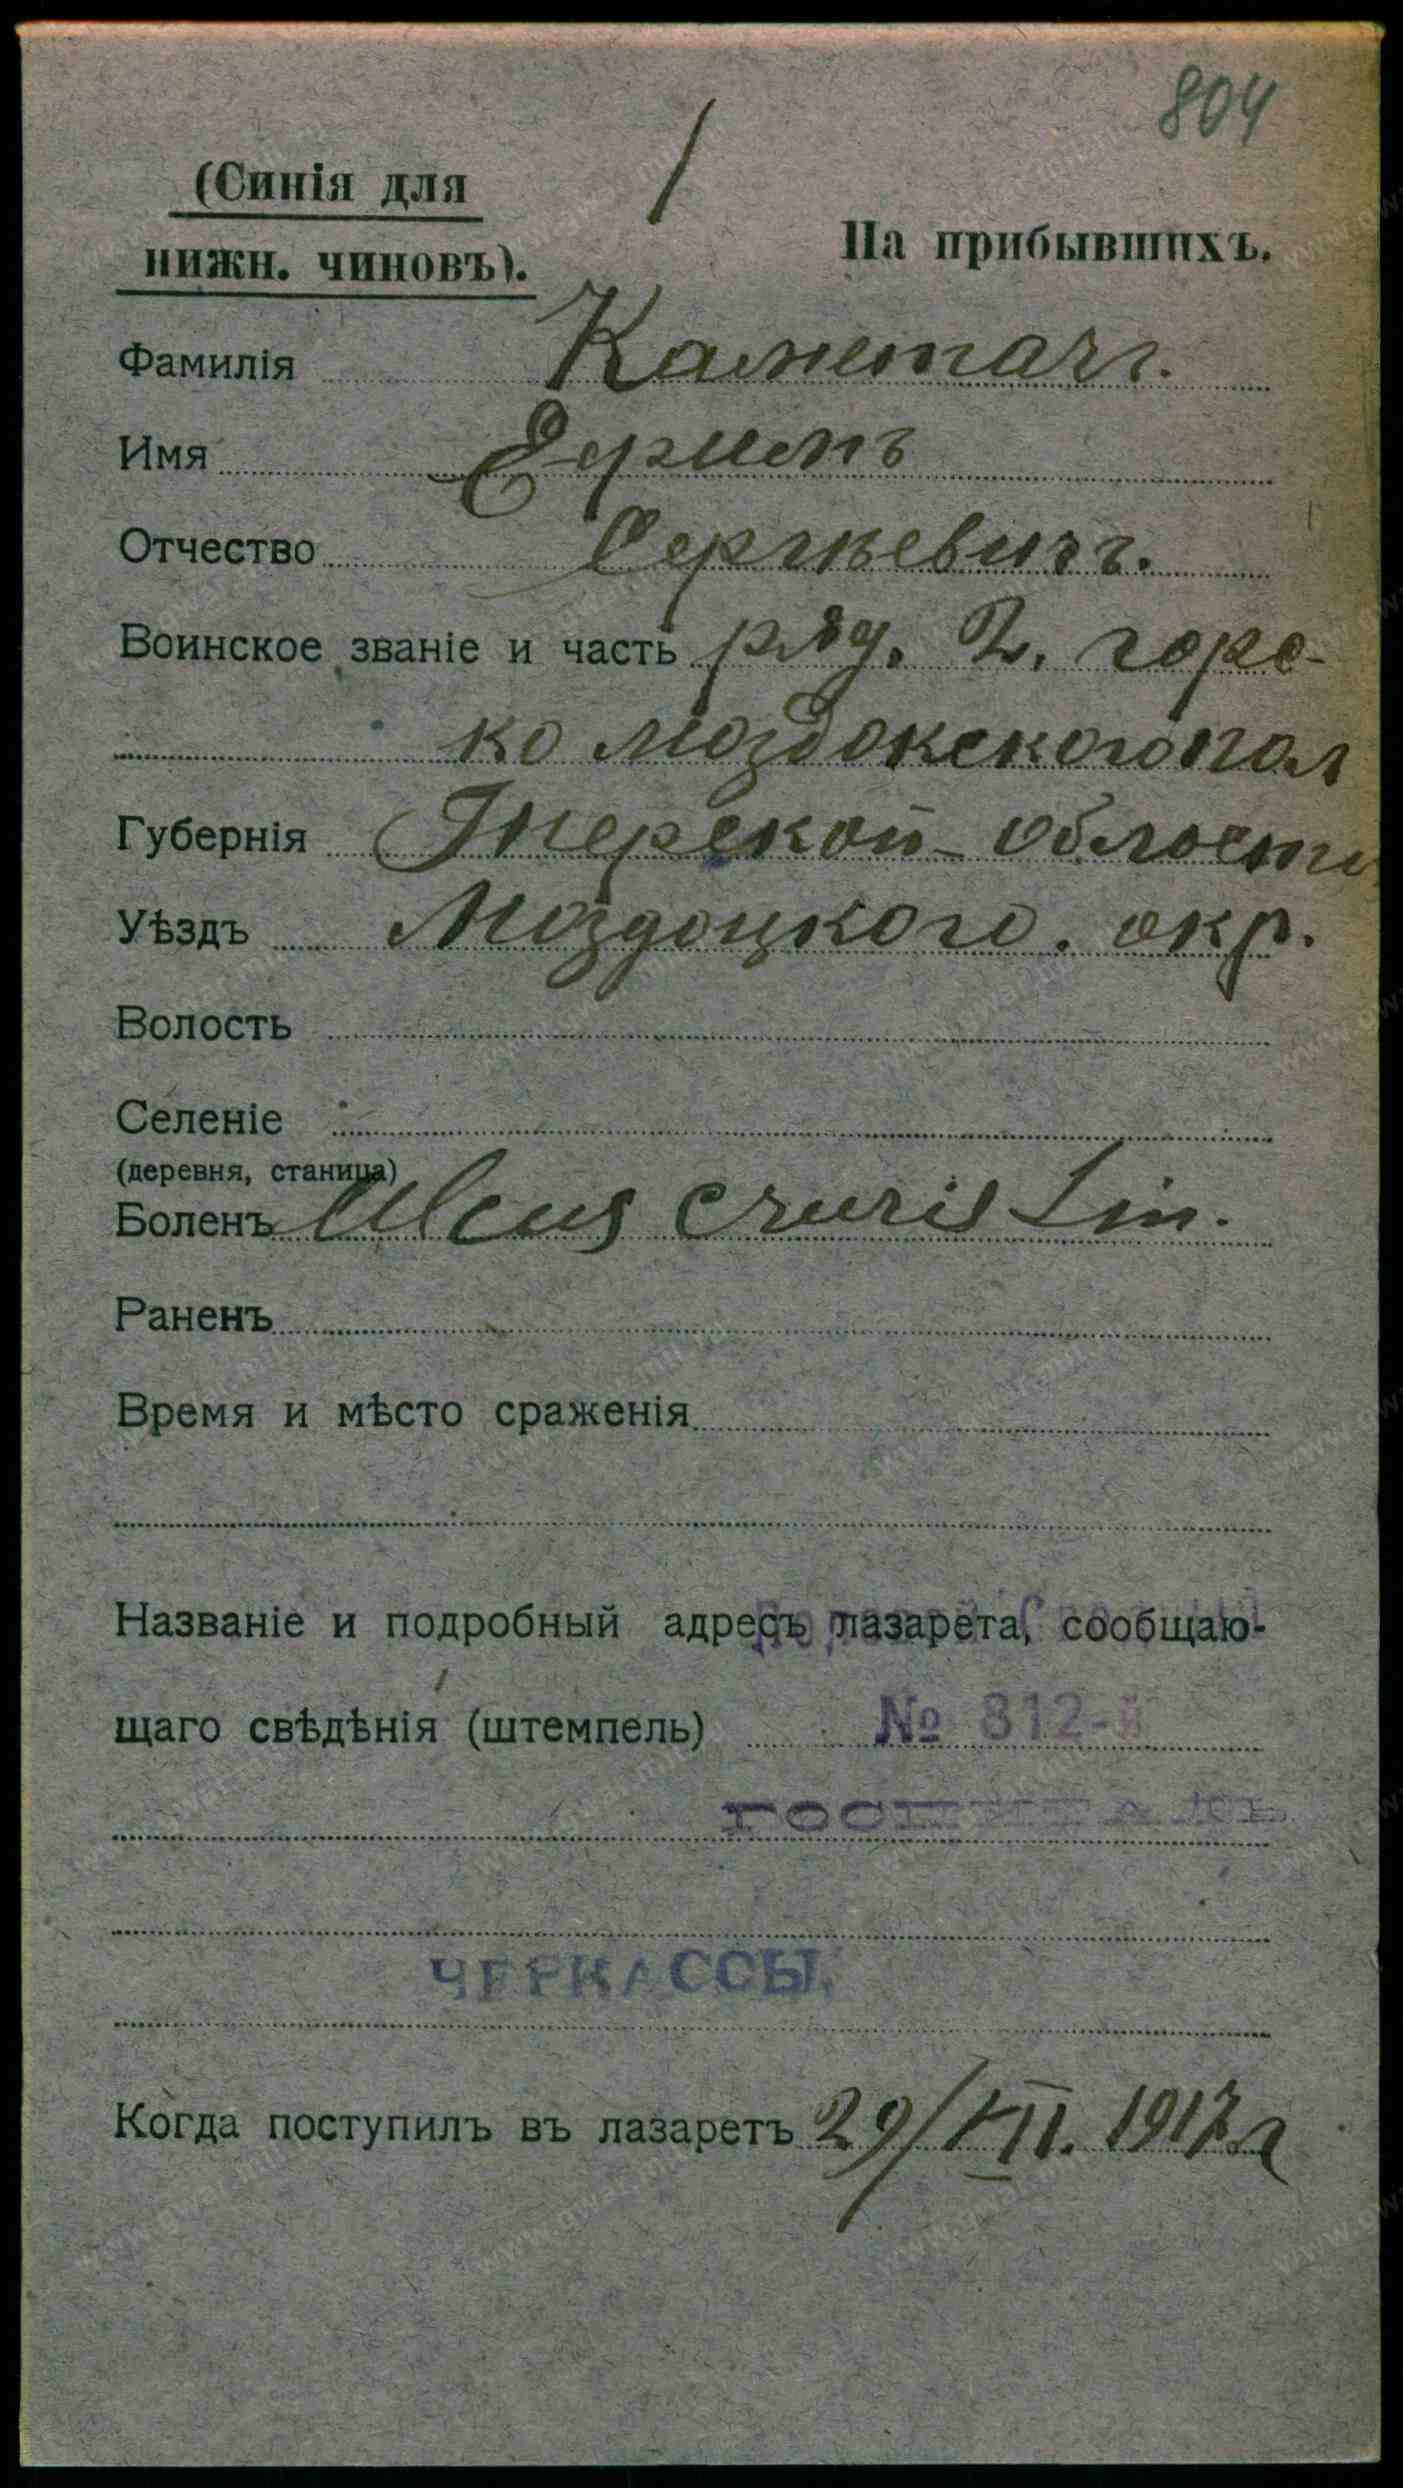 804
(Синія для
нижн. чиновъ).
На прибывшихъ.
Фамилія
Имя Ефимъ
Отчество Сергѣевичъ.
Воинское званіе и часть ряд. 2. горс-
ко моздокского пол
Губернія Терской области
Уѣздъ Моздоцкого. окр.
Волость
Селеніе
(деревня, станица)
Боленъ Ulcus cruris Sin.
Раненъ
Время и мѣсто сраженія
Названіе и подробный адресъ лазарета, сообщаю-
щаго свѣдѣнія (штемпель) № 812-й
ГОСПИТАЛЬ
ЧЕРКАССЫ.
Когда поступилъ въ лазаретъ 29/VII. 1917 г